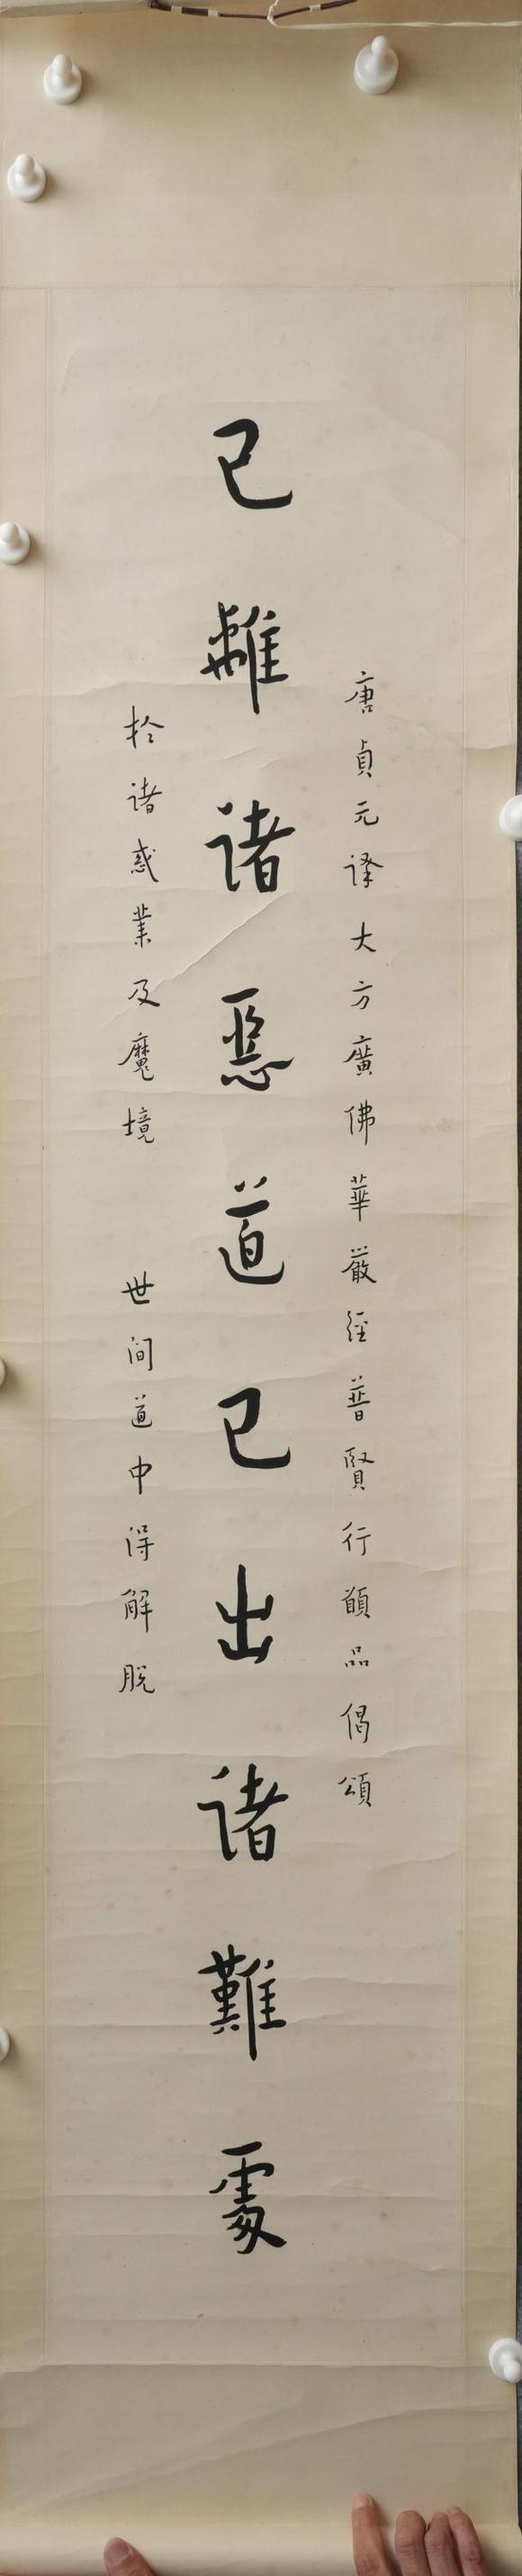 唐貞元譯大方廣佛華嚴經普賢行願品偈頌
已離諸惡道已出諸難處
於諸惑業及魔境 世間道中得解脫